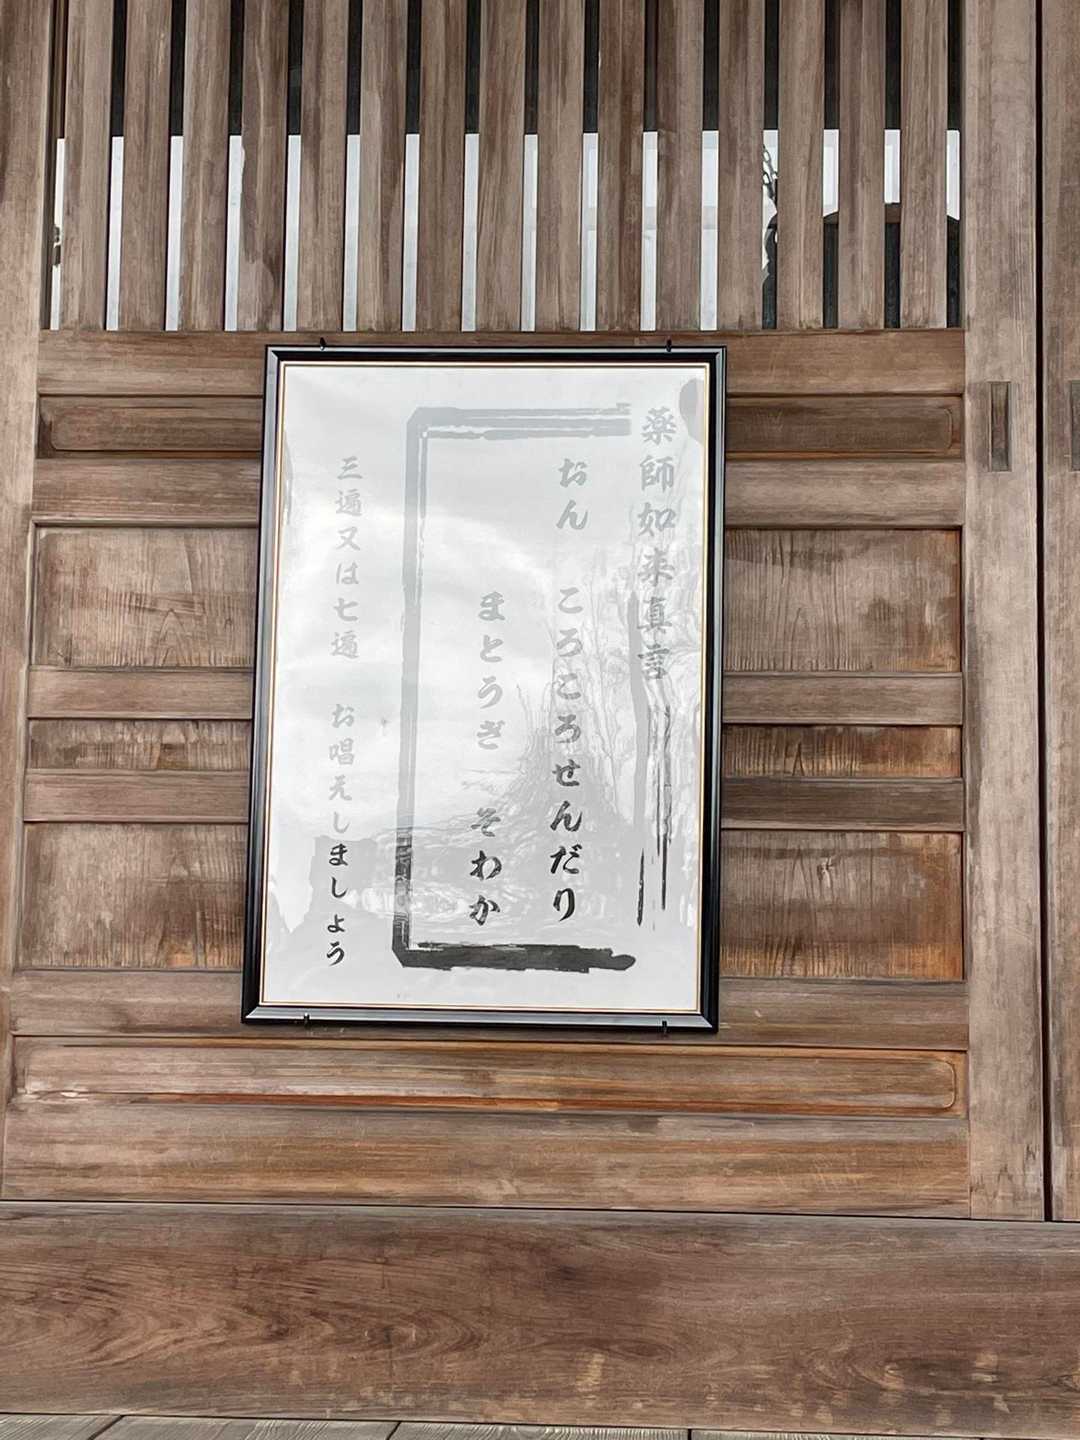 薬師如来真言
おん ころころせんだり
まとうぎ そわか
三遍又は七遍 お唱えしましょう